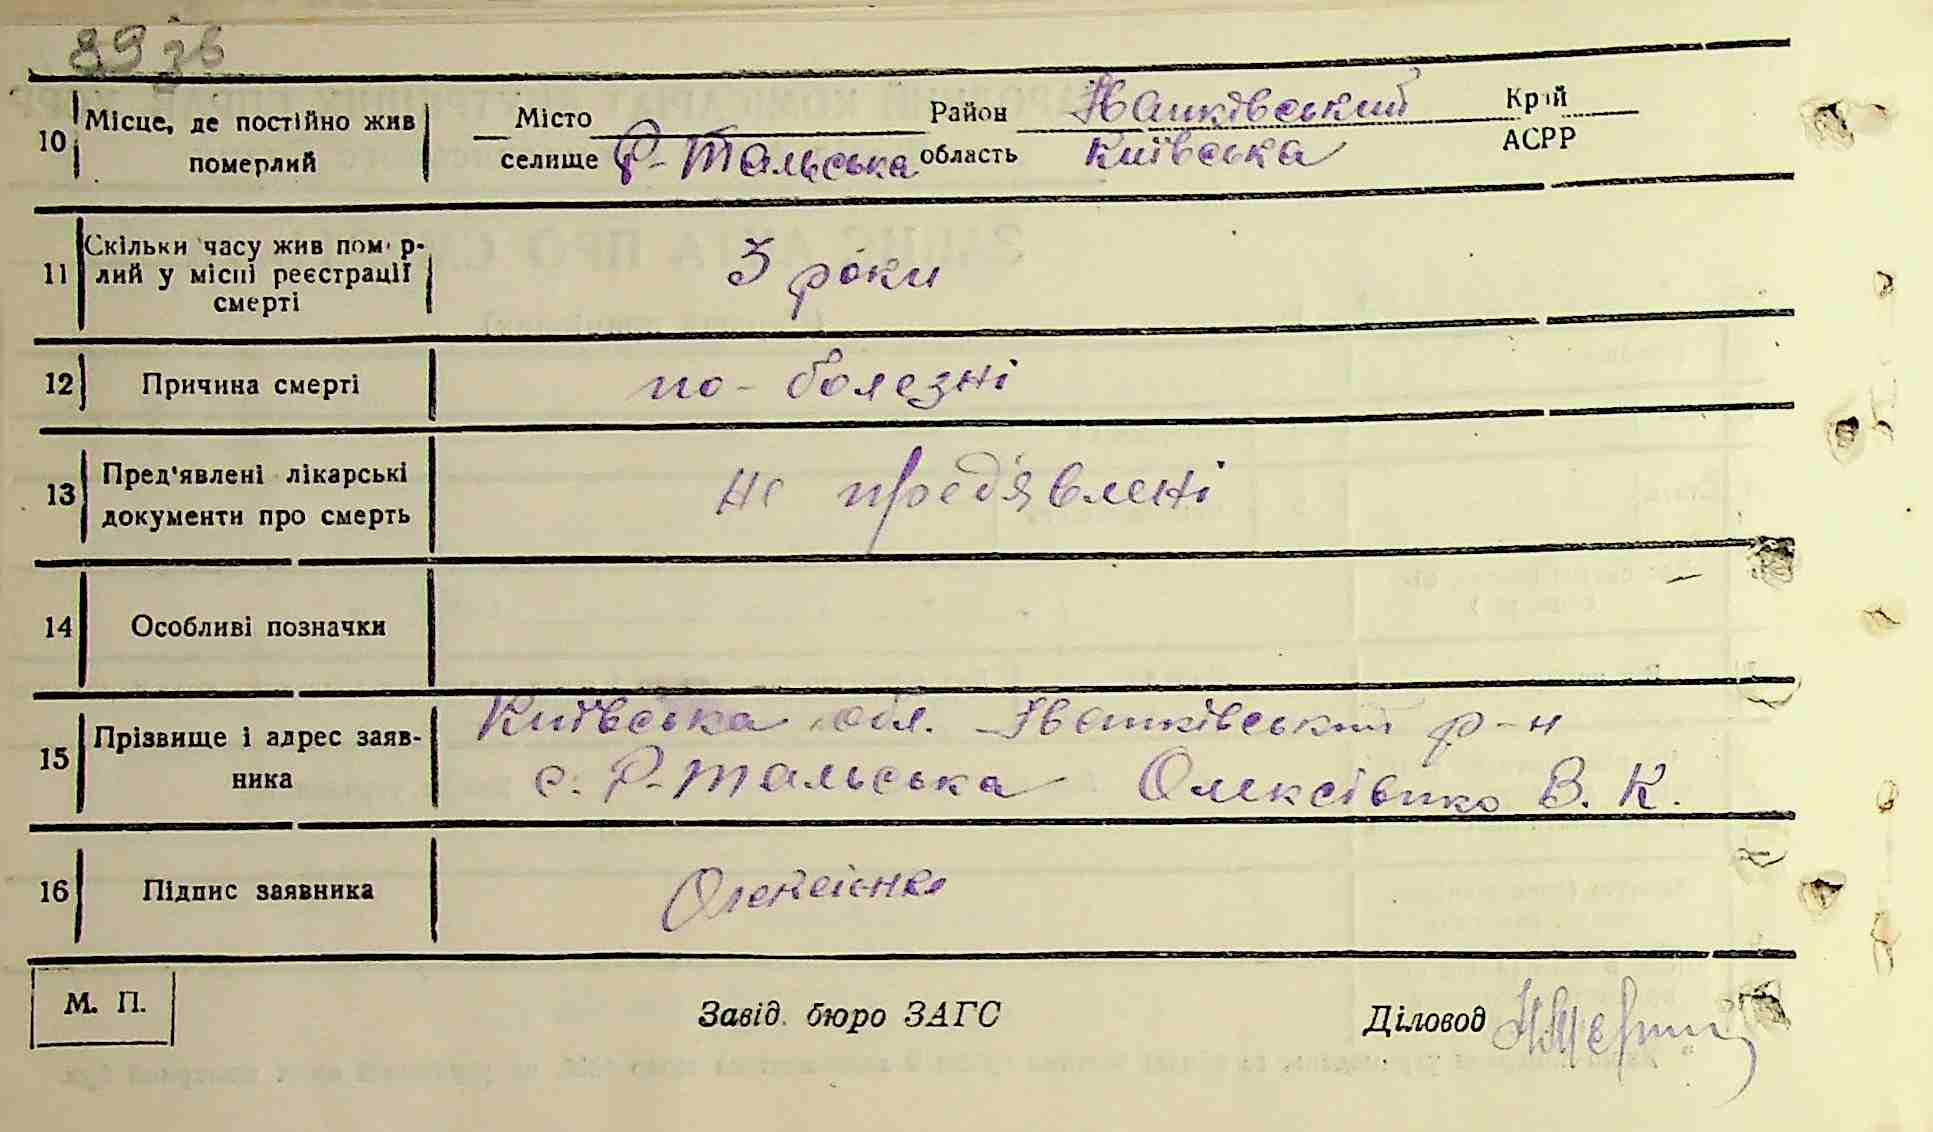 89 зв
10 Місце, де постійно жив Місто Район Іванківський Край
померлий селище Р-Тальська область Київська АСРР
Скільки часу жив помер-
11 лий у місці реєстрації 3 роки
смерті
12 Причина смерті по-болезні
13 Пред'явлені лікарські не предявлені
документи про смерть
14 Особливі позначки
Київська обл. Іванківський р-н
15 Прізвище і адрес заяв-
ника с. Р-Тальська Олексієнко В. К.
16 Підпис заявника Олексієнко
М. П. Завід. бюро ЗАГС Діловод